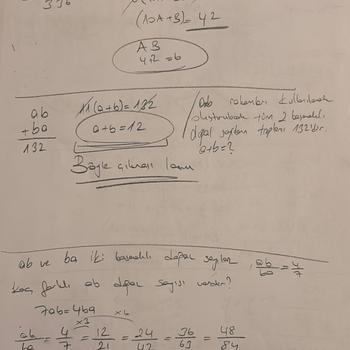 (10A+B) = 42
AB
42 = b
ab
+ba
132
11(a+b) = 132
a+b = 12
Böyle çıkması lazım
ab rakamları kullanılarak
oluşturulacak tüm 2 basamaklı
doğal sayıların toplamı 132'dir.
a+b = ?
ab ve ba iki basamaklı doğal sayılar, ab/ba = 4/7
kaç farklı ab doğal sayısı vardır?
7ab = 4ba
x3 x6
ab/ba = 4/7 = 12/21 = 24/42 = 36/63 = 48/84